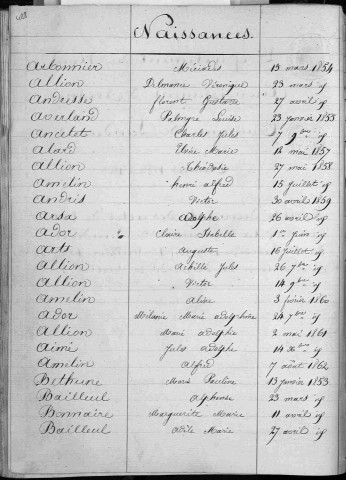 Naissances.
Arbonnier 13 mars 1854
Allion Delmance Véronique 23 mars id
Andresse florent Gustave 27 avril id
Averland Palmyre Louise 23 janvier 1855
Ancelet Charles Jules 7 9bre id
Alard Elvire Marie 12 mai 1857
Allion 27 mai 1858
Amelin henri alfred 15 juillet id
Andris Victor 30 avril 1859
Arsa adolphe 26 avril id
Ador Claire Isabelle 1er juin id
Arts auguste 16 juillet id
Allion Achille Jules 26 7bre id
Allion Victor 14 9bre id
Amelin aline 3 février 1860
Ador Mélanie Marie adolphine 24 7bre id
Allion Marie adolphe 2 mai 1861
Aimé Jules adolphe 14 Xbre id
Amelin Alfred 7 août 1862
Bethune Marie Pauline 13 janvier 1853
Bailleul alphonse 23 mars id
Bonnaire Marguerite Marie 11 avril id
Bailleul Marie 27 avril id